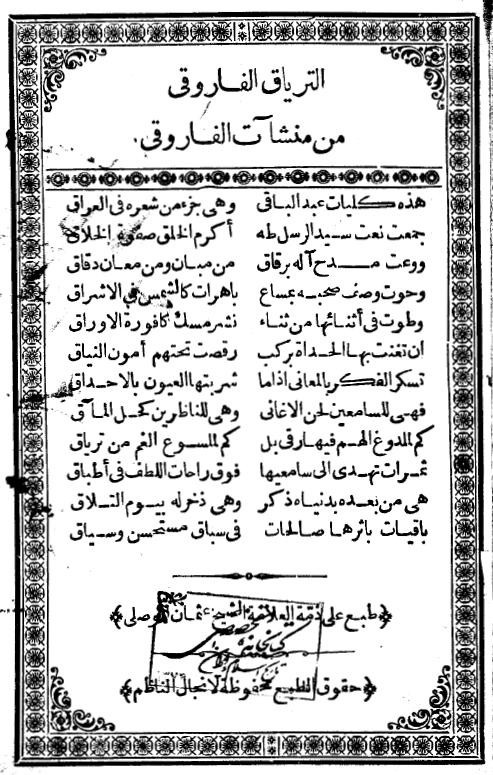 الترياق الفاروقى
من منشآت الفاروقى
هذه كليات عبد الباقى وهى جزء من شعره فى العراق
جمعت نعت سيد الرسل طه أكرم الخلق صفوة الخلاق
ووعت مدح آله برقاق من مبان ومن معان دقاق
وحوت وصف صحبه بمساع باهرات كالشمس فى الاشراق
وطوت فى أثنائها من ثناء نشر مسك كافورة الاوراق
ان تغنت بها الحداة بركب رقصت تحتهم أمون النياق
تسكر الفكر بالمعانى اذا ما شربتها العيون بالاحداق
فهى للسامعين لحن الاغانى وهى للناظرين كحل المآقى
كم لملدوغ الهم فيها رقى بل كم لملسوع الغم من ترياق
ثمرات تهدى الى سامعيها فوق راحات اللطف فى أطباق
هى من بعده بدنياه ذكر وهى ذخر له بيوم التلاق
باقيات باثرها صالحات فى سباق مستحسن وسياق
﴿طبع على ذمة العلامة الشيخ عثمان الموصلى﴾
﴿حقوق الطبع محفوظة لانجال الناظم﴾